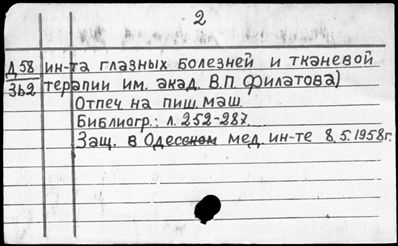 2
Д58 ин-та глазных болезней и тканевой
362 терапии им. акад. В.П. Филатова)
Отпеч. на пиш. маш.
Библиогр.: л. 252-287.
Защ. в Одесском мед. ин-те 8.5.1958г.